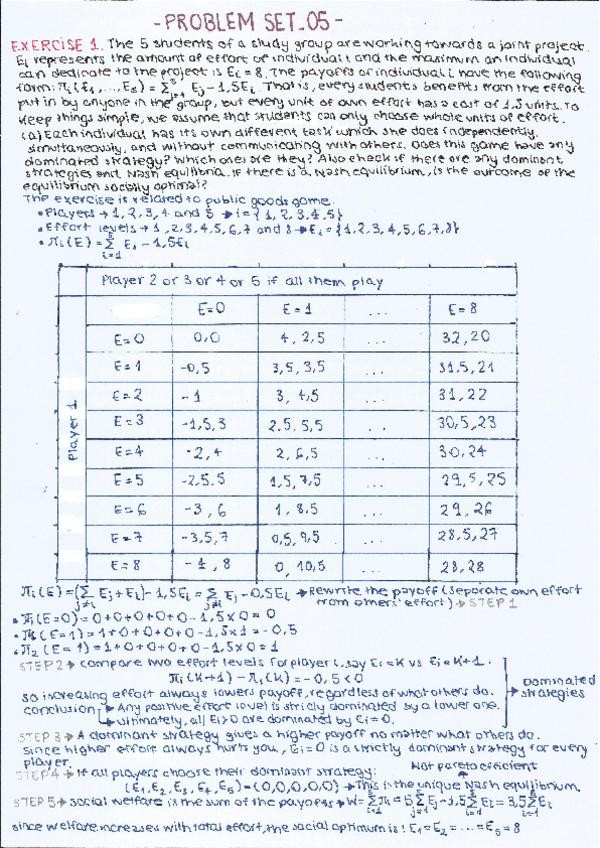 - PROBLEM SET_05 -
EXERCISE 1. The 5 students of a study group are working towards a joint project.
Ei represents the amount of effort of individual i and the maximum an individual
can dedicate to the project is Ei = 8. The payoffs of individual i have the following
form: πi (E1,..., E5) = Σ⁵j=1 Ej - 1,5Ei. That is, every student benefits from the effort
put in by anyone in the group, but every unit of own effort has a cost of 1.5 units. To
keep things simple, we assume that students can only choose whole units of effort.
(a) Each individual has its own different task which she does independently,
simultaneously, and without communicating with others. Does this game have any
dominated strategy? Which ones are they? Also check if there are any dominant
strategies and Nash equilibria. If there is a Nash equilibrium, is the outcome of the
equilibrium socially optimal?
The exercise is related to public goods game.
• Players → 1, 2, 3, 4 and 5 → i = {1,2,3,4,5}
• Effort levels → 1,2,3,4,5,6,7 and 8 → Ei = {1,2,3,4,5,6,7,8}
• πi(E) = Σ⁵i=1 Ei - 1,5Ei
Player 2 or 3 or 4 or 5 if all them play
E=0 E=1 ... E=8
Player 1
E=0 0,0 4, 2,5 ... 32,20
E=1 -0,5 3,5, 3,5 ... 31.5,21
E=2 -1 3, 4,5 ... 31,22
E=3 -1,5,3 2.5, 5,5 ... 30,5,23
E=4 -2,4 2, 6,5 ... 30,24
E=5 -2,5.5 1,5, 7,5 ... 29,5,25
E=6 -3,6 1, 8,5 ... 29,26
E=7 -3,5,7 0,5, 9,5 ... 28,5,27
E=8 -4,8 0, 10,5 ... 28,28
πi(E) = (Σj≠i Ej + Ei) - 1,5Ei = Σj≠i Ej - 0,5Ei → Rewrite the payoff (separate own effort
from others' effort) → STEP 1
• π1(E=0) = 0+0+0+0+0 - 1,5x0 = 0
• π1(E=1) = 1+0+0+0+0 - 1,5x1 = -0,5
• π2(E=1) = 1+0+0+0+0 - 1,5x0 = 1
STEP 2 → Compare two effort levels for player i, say Ei = K vs Ei = K+1.
πi(K+1) - πi(K) = -0,5 < 0
so increasing effort always lowers payoff, regardless of what others do.
conclusion → Any positive effort level is stricly dominated by a lower one.
→ Ultimately, all Ei > 0 are dominated by Ei = 0.
→ Dominated strategies
STEP 3 → A dominant strategy gives a higher payoff no matter what others do.
Since higher effort always hurts you, Ei = 0 is a strictly dominant strategy for every
player.
Not pareto efficient
STEP 4 → If all players choose their dominant strategy:
(E1, E2, E3, E4, E5) = (0,0,0,0,0) → This is the unique Nash equilibrium.
STEP 5 → Social welfare is the sum of the payoffs → W = Σ⁵i=1 πi = 5 Σ⁵j=1 Ej - 1,5 Σ⁵i=1 Ei = 3,5 Σ Ei
since welfare increases with total effort, the social optimum is: E1 = E2 = ... = E5 = 8